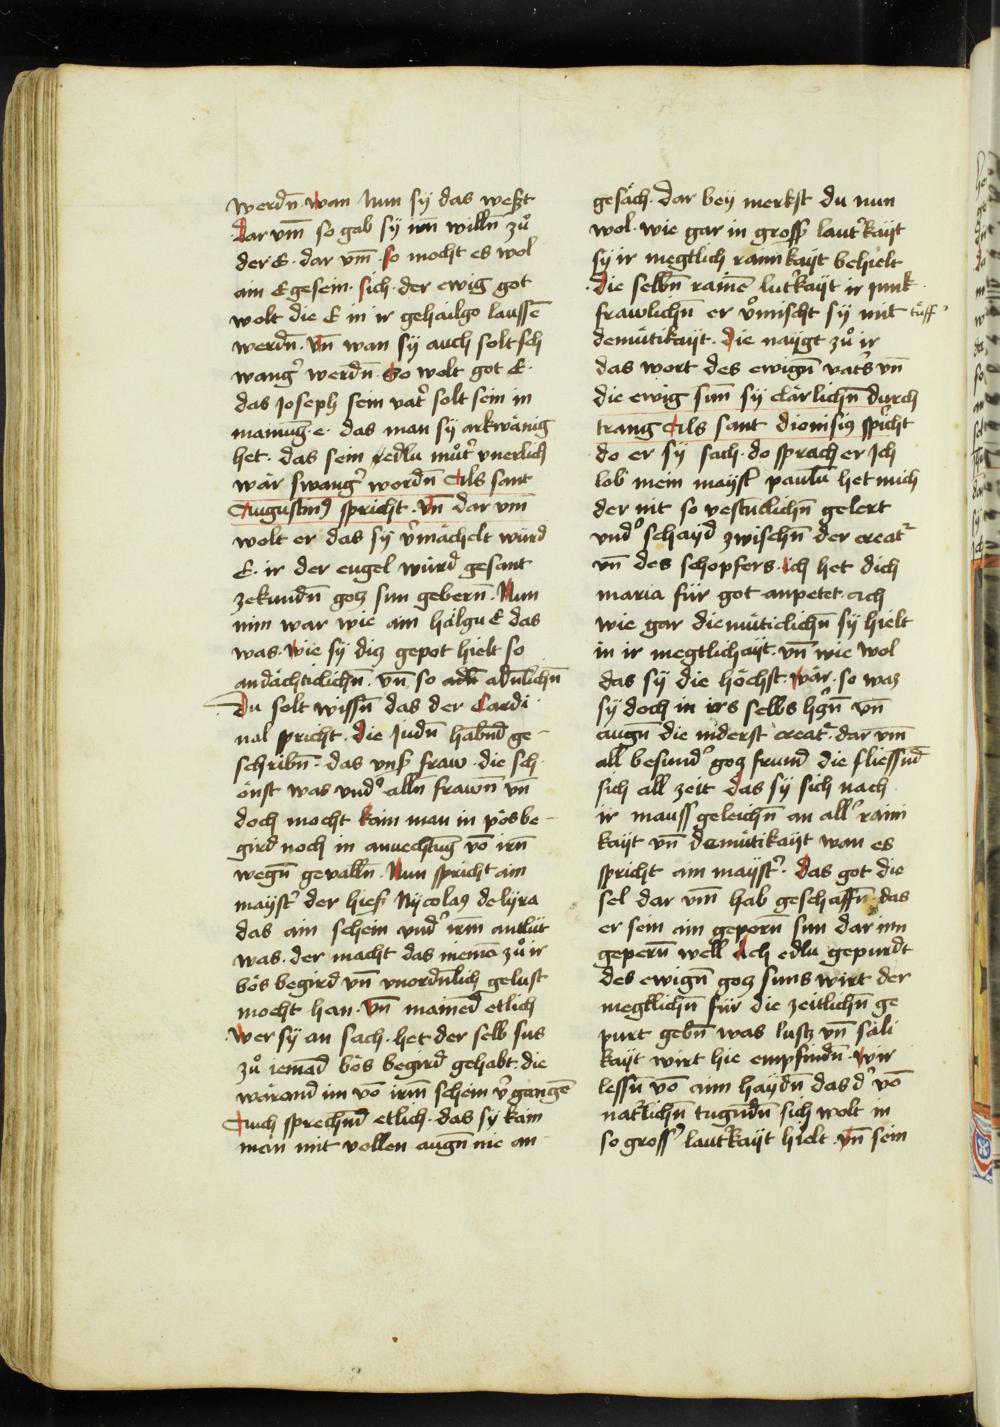 werdn̄ · wan Nun sÿ das weßt
dar vm̄ so gab sÿ irn̄ willn̄ zů
der E · dar vm̄ · so mocht es wol
ain E gesein · sich · der ewig got
wolt die E in ir gehailgo laussē
werdn̄ · vn̄ wan sÿ auch solt sch
wang᷑ werdn̄ · so wolt got E ·
das Joseph sein vat᷑ solt sein in
mainūg · e · das man sÿ arkwänig
het · das sein edlu můt᷑ vnerlich
wär swang᷑ wordn̄ Als sant
Augustinꝰ spricht · vn̄ dar vm̄
wolt er das sÿ v᷑mächelt würd
E · ir der engel würd gesant
zekundn̄ gotz sun gebern̄ · Nun
nim war wie ain hälgu E das
was · wie sÿ ditz gepot hielt so
andächticlichn̄ · vn̄ so
Du solt wissn̄ das der Cardi
nal spricht · die Judn̄ habnd̄ ge-
schribn̄ · das vns᷑ fraw · die sch
önst was vnd᷑ alln̄ frawn̄ vn̄
doch mocht kain man in pös be-
gird noch in anuechtūg vō irn̄
wegn̄ gevalln̄ · Nun spricht ain
maÿst᷑ der hies Nÿcolaꝰ de lÿra
das ain schein vnd᷑ irm̄ antlüt
was · der macht das niemā zů ir
bös begird vn̄ vnordn̄lich gelust
mocht han · vn̄ mainēd etlich
wer sÿ an sach · het der selb sus
zů iemād bös begird gehabt · die
wärand im vō irm̄ schein v᷑gangē
Auch sprechnd̄ etlich · das sÿ kain
man mit vollen augn̄ nie an
gesäch · Dar beÿ merkst du nun
wol · wie gar in gross᷑ laut᷑kaÿt
sÿ ir megtlich rainikaÿt behielt
die selbn̄ rainē lut᷑kaÿt ir junk
frawlichn̄ er v᷑mischt sÿ mit tüff᷑
demütikaÿt · die naÿgt zů ir
das wort des ewign̄ vat᷑s vn̄
die ewig sun̄ sÿ clärlichn̄ durch
trang Als sant dionisiꝰ spricht
do er sÿ sach · do sprach er Ich
lob mein maÿst᷑ paulū het mich
der nit so vesticlichn̄ gelert
vnd᷑schaÿd zwischn̄ der creat᷑
vn̄ des schopfers · ich het dich
maria für got anpetet · ach
wie gar diemüticlichn̄ sÿ hielt
in ir megtlichaÿt · vn̄ wie wol
das sÿ die höchst · wär · so waz
sÿ doch in irs selbs vn̄
augn̄ die niderst creat᷑ · dar vm̄
all besund᷑ gotz frund die fliessnd̄
sich all zeit das sÿ sich nach
ir mauss geleichn̄ an all᷑ raini
kaÿt vn̄ demütikaÿt wan es
spricht ain maÿst᷑ · das got die
sel dar vm̄ hab geschaffn̄ · das
er sein ain geporn̄ sun dar inn
gepern̄ well Ach edlu gepurdt
des ewign̄ gotz suns wirt der
megtlichn̄ für die zeitlichn̄ ge
purt gebn̄ was lustz vn̄ säli
kaÿt wirt hie empfindn̄ · wir
lessn̄ vō aim haÿdn̄ das d᷑ vō
nat᷑lichn̄ tugndn̄ sich wolt in
so gross᷑ laut᷑kaÿt hielt · vn̄ sein